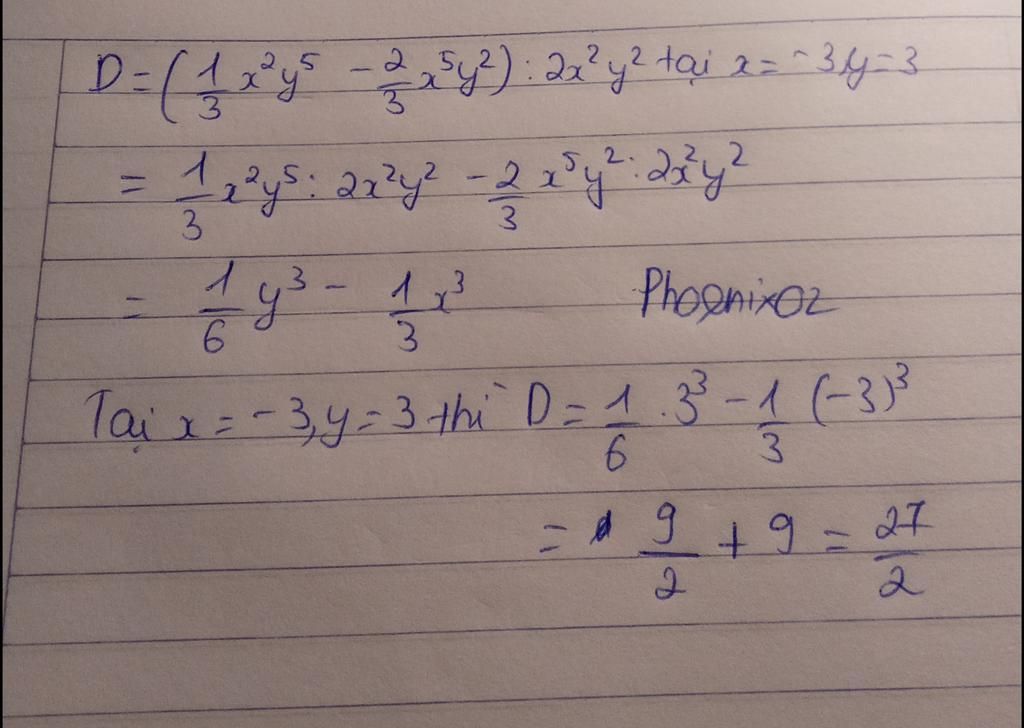 D = (1/3 x²y⁵ - 2/3 x⁵y²) : 2x²y² tại x = -3, y = 3
= 1/3 x²y⁵ : 2x²y² - 2/3 x⁵y² : 2x²y²
= 1/6 y³ - 1/3 x³ Phoenixoz
Tại x = -3, y = 3 thì D = 1/6 . 3³ - 1/3 (-3)³
= 9/2 + 9 = 27/2